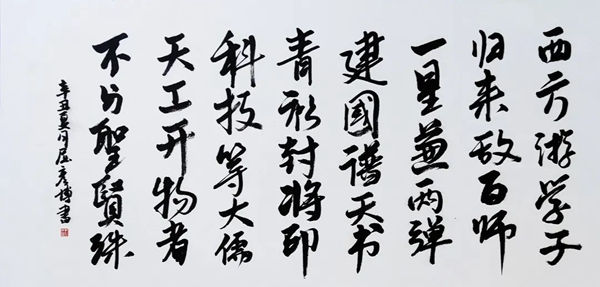 西方游学子
归来敌百师
一星兼两弹
建國谱天书
青衫封将印
科技等大儒
天工开物者
不与聖賢殊
辛丑夏月屈彦博書